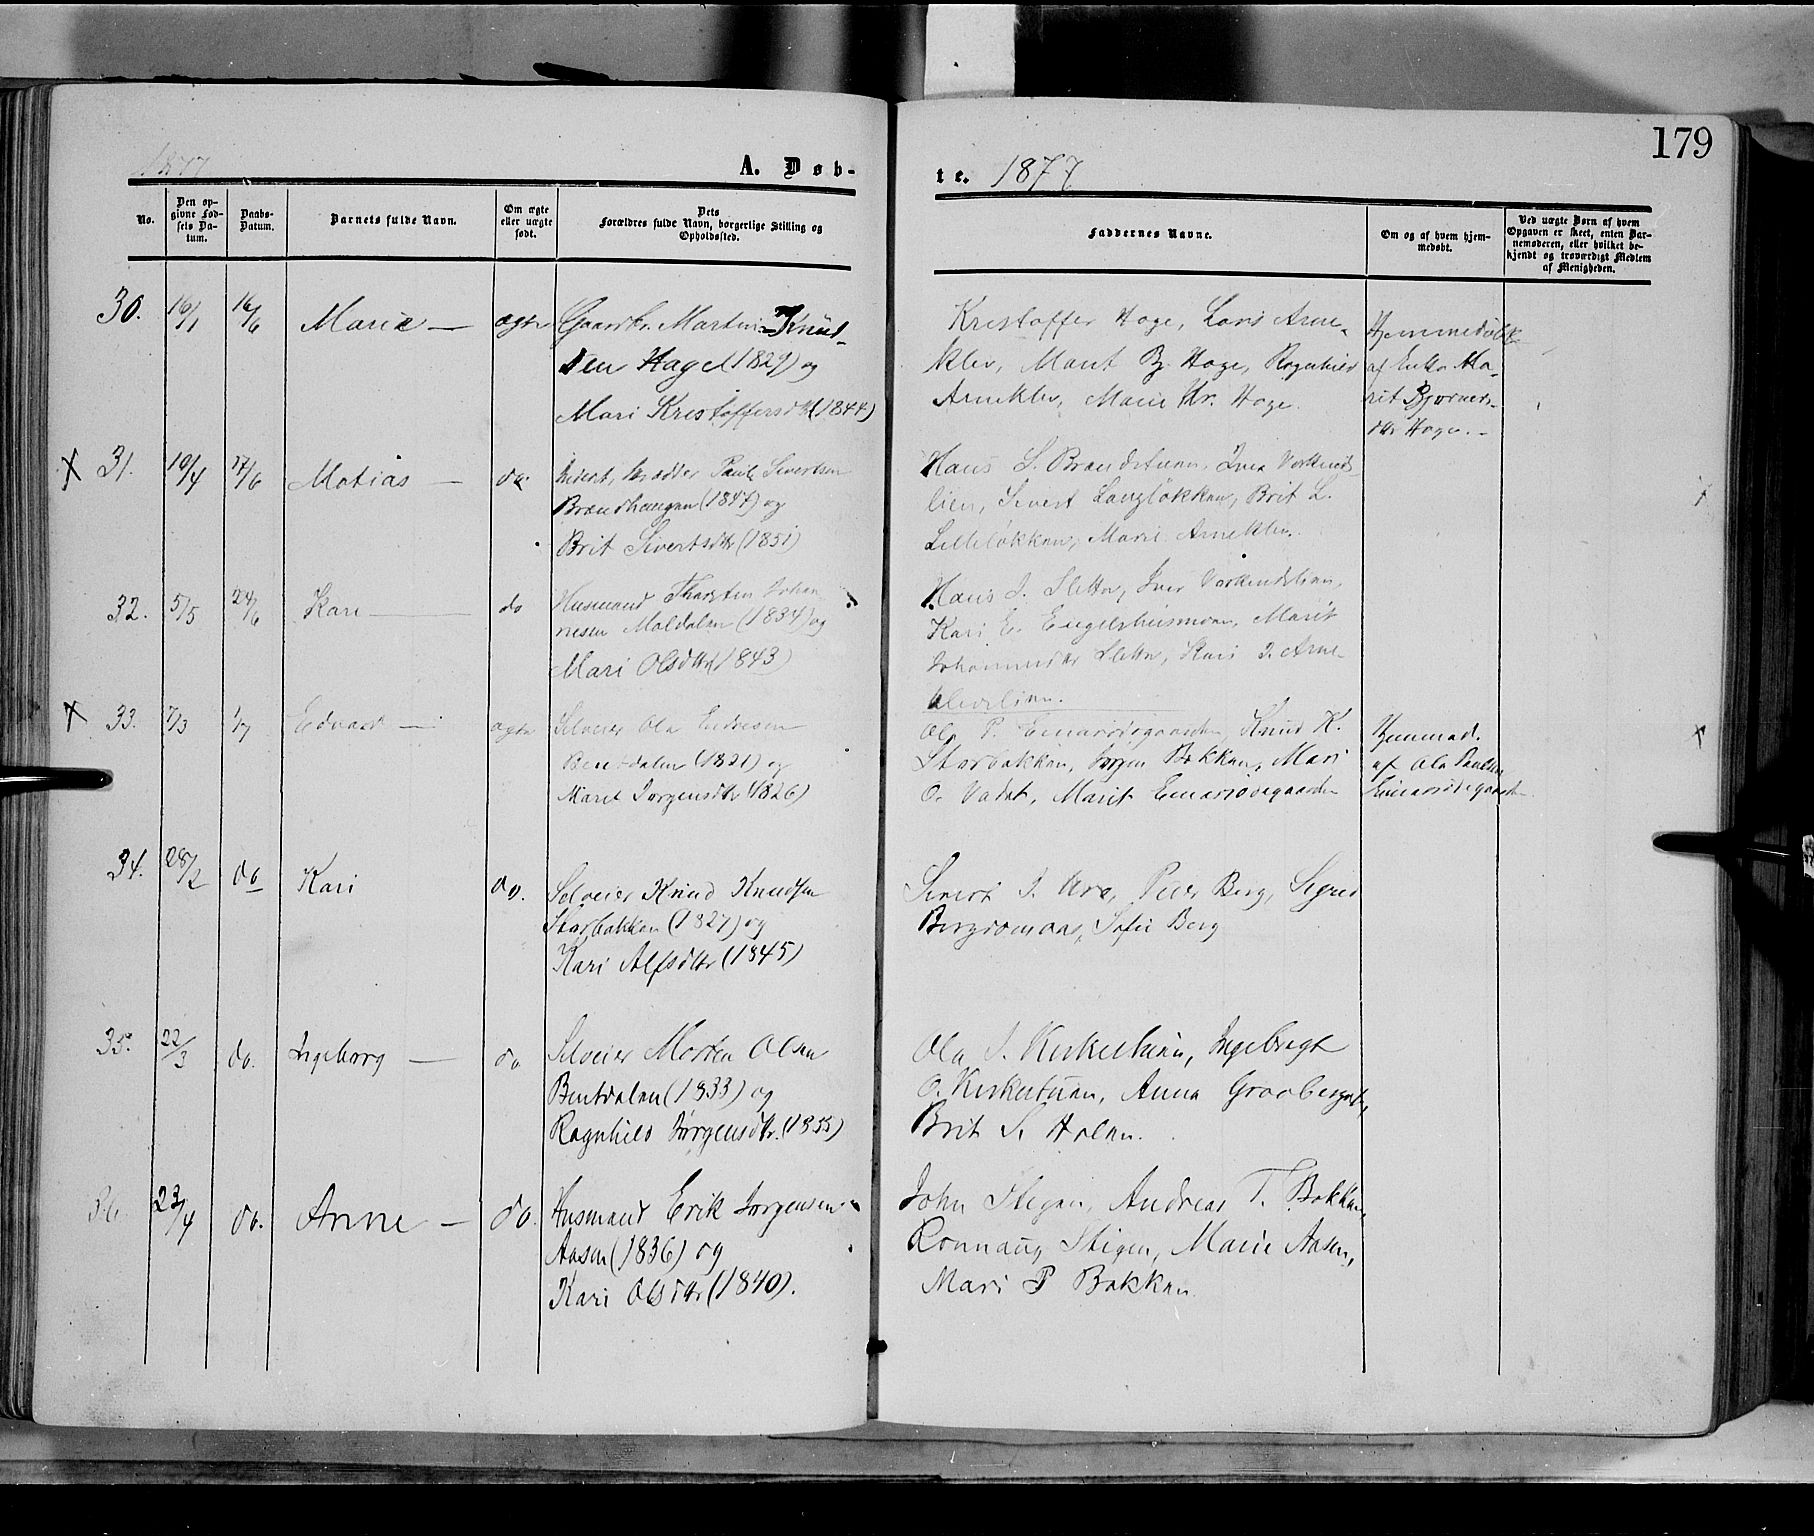 179
1877
A. Døb-
te. 1877
No.
Den op-
givne Fød-
sels Da-
tum.
Daabs-
Datum.
Barnets fulde Navn.
Om ægte
eller uægte
født.
Dets
Forældres fulde Navn, borgerlige Stilling og
Opholdssted.
Faddernes Navne.
Om og af hvem hjem-
medøbt.
Ved uægte Børn af hvem
Opgaven er skeet, enten Bar-
nemoderen, eller hvilket be-
kjendt og troværdigt Medlem
af Menigheden.
30. 16/1 16/6 Marie — ægte Gaardbr. Martin Knud-
sen Hage (1829) og
Mari Kristoffersdtr (1844)
Kristoffer Hage, Lars Arne-
klev, Marit Bj. Hage, Ragnhild
Arneklev, Marie Kr. Hage.
Hjemmedøbt
af Enke Ma-
rit Bjørns-
dtr Hage. -
31. 10/4 17/6 Matias — do. Paul Sivertsen
Brændhaugen (1847) og
Brit Sivertsdtr (1851)
Hans S. Brændstuen, Iver
lien, Sivert Langløkken, Brit L.
Lilleløkken, Marit Arneklev.
32. 5/5 24/6 Kari — do Husmand Thorsten Johan-
nesen Moldalen (1834) og
Mari Olsdtr (1843)
Hans J. Sletten, Iver
Kari E. Engelshusmoen, Marit
Johannesdtr Sletten, Kari J. Arne-
33. 7/3 1/7 Edvard — ægte Selveier Ola Endresen
Bentdalen (1821) og
Marit Jørgensdtr (1826)
Ola P. Einarsødegaarden, Knud K.
Storbakken, Jørgen Bakken, Mari
O. Vadet, Marit Einarsødegaarden
Hjemmed.
af Ola Paulsen
Einarsødegaarden
34. 28/2 do Kari do. Selveier Knud Knudsen
Storbakken (1827) og
Kari Alfsdtr (1845)
Sivert J. Uro, Peer Berg, Sigrid
Bergsomaas, Sofie Berg
35. 22/3 do. Ingeborg — do Selveier Morten Olsen
Bentdalen (1833) og
Ragnhild Jørgensdtr. (1855)
Ola J. Kirketuen, Ingebregt
O. Kirketuen, Anna Graaberget,
Brit S. Holen.
36. 23/4 do. Anne — do. Husmand Erik Jørgensen
Aasen (1836) og
Kari Olsdtr (1840).
John Stigen, Andreas T. Bakken,
Rønnaug Stigen, Marie Aasen,
Mari P Bakken.